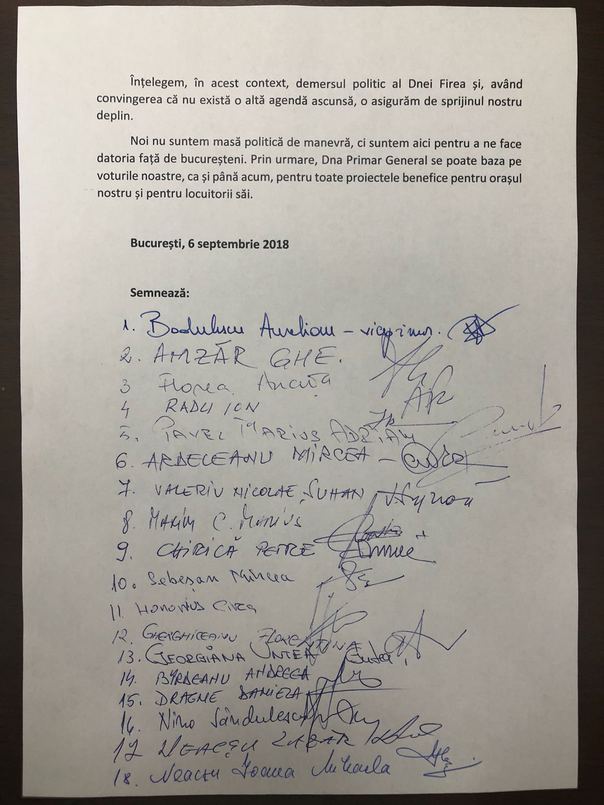 Înțelegem, în acest context, demersul politic al Dnei Firea și, având
convingerea că nu există o altă agendă ascunsă, o asigurăm de sprijinul nostru
deplin.
Noi nu suntem masă politică de manevră, ci suntem aici pentru a ne face
datoria față de bucureșteni. Prin urmare, Dna Primar General se poate baza pe
voturile noastre, ca și până acum, pentru toate proiectele benefice pentru orașul
nostru și pentru locuitorii săi.
București, 6 septembrie 2018
Semnează:
1. Badulescu Aurelian – viceprimar.
2. AMZĂR GHE.
3 Florea Ancuța
4 RADU ION
5. PAVEL MARIUS ADRIAN
6. ARDELEANU MIRCEA –
7. VALERIU NICOLAE SUHAN
8. MAXIM C. MARIUS
9. CHIRICĂ PETRE
10. Sebeșan Mircea
11 HONORIUS
12. GHERGHICEANU FLORENTINA
13. GEORGIANA UNTEA
14. BÎRDEANU ANDREEA
15. DRAGNE DANIELA
16. Nina Săndulescu
17 NEACȘU LAZĂR
18. Neacsu Ioana Mihaela